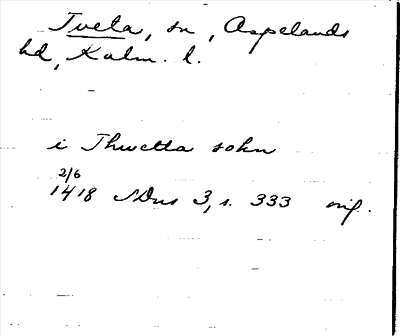 Tveta, sn, Aspelands
hd, Kalm. l.
i Thwetta sokn
2/6
1418 SDns 3, s. 333 orig.